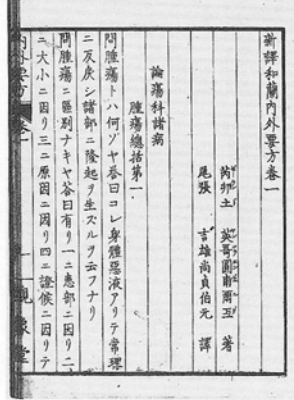 新譯和蘭內外要方卷一
芮卯土 英哥圓甫爾玉 著
尾張 吉雄尚貞伯元 譯
論瘍科諸病
腫瘍總括第一
問腫瘍トハ何ゾヤ荅曰コレ身體惡液アリテ常理
ニ反戾シ諸部ニ隆起ヲ生ズルヲ云フナリ
問腫瘍ニ區別ナキヤ荅曰有リ一ニ患部ニ因リ二
ニ大小ニ因リ三ニ原因ニ因リ四ニ證候ニ因リテ
內外要方 卷一
一 觀象堂